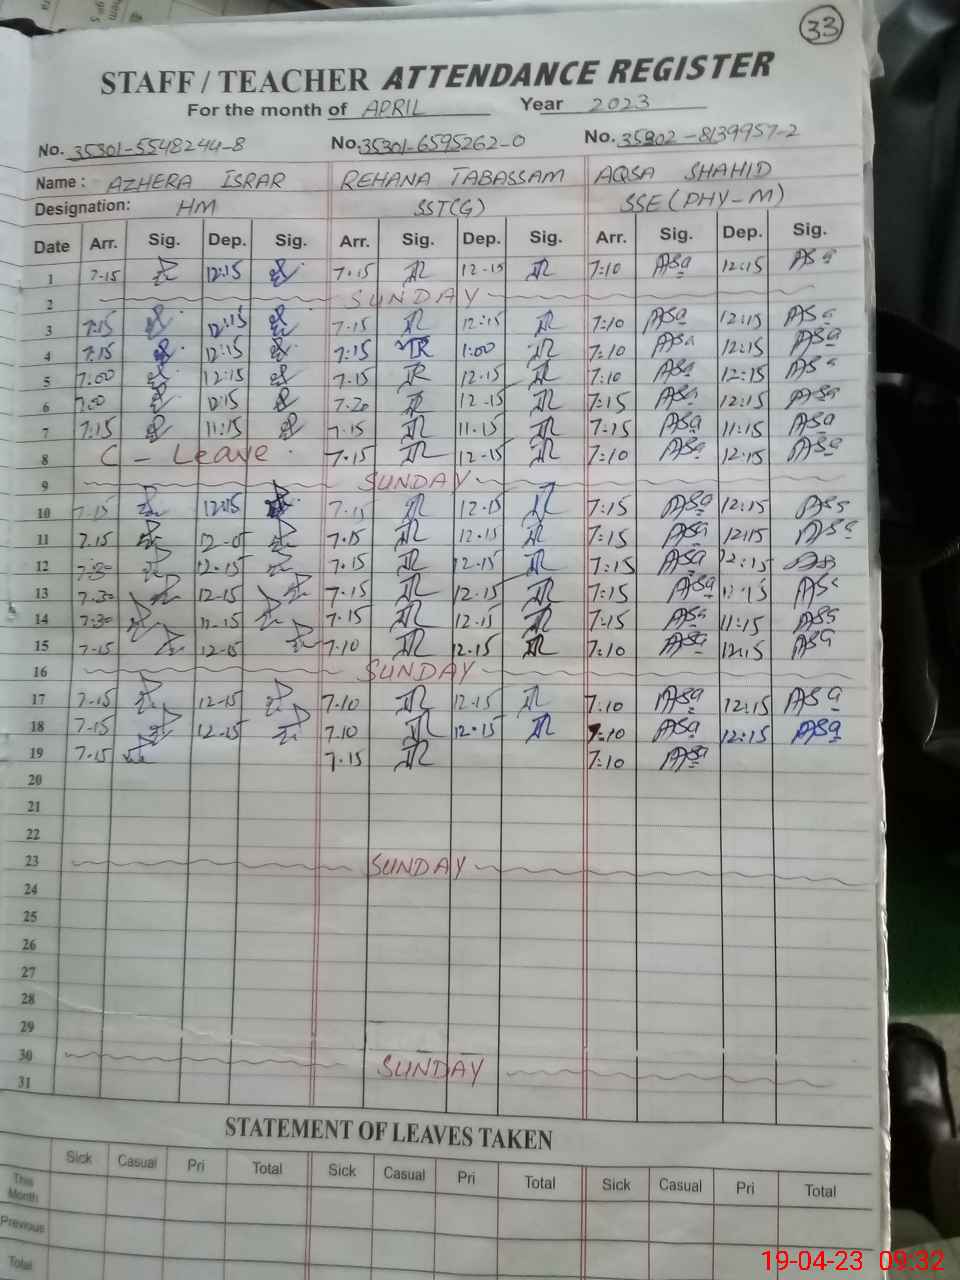 33
STAFF / TEACHER ATTENDANCE REGISTER
For the month of APRIL Year 2023
No. 35301-5548244-8 No. 35301-6595262-0 No. 35302-8139957-2
Name : AZHERA ISRAR REHANA TABASSAM AQSA SHAHID
Designation: HM SST(G) SSE (PHY-M)
Date Arr. Sig. Dep. Sig. Arr. Sig. Dep. Sig. Arr. Sig. Dep. Sig.
1 7-15 12:15 7-15 12-15 7:10 12:15
2 SUNDAY
3 7:15 12:15 7-15 12:15 7:10 12:15
4 7:15 12:15 7:15 1:00 7:10 12:15
5 7:00 12:15 7-15 12.15 7:10 12:15
6 7:00 12:15 7-20 12-15 7:15 12:15
7 7:15 11:15 7-15 11-15 7:15 11:15
8 C - Leave 7-15 12-15 7:10 12:15
9 SUNDAY
10 7-15 12:15 7-15 12.15 7:15 12:15
11 7.15 7-15 12.15 7:15 12:15
12 7-30 12.15 7.15 12.15 7:15 12:15
13 7-30 12-15 7-15 12.15 7:15
14 7:30 11-15 7-15 12-15 7:15 11:15
15 7-15 12-15 7-10 12.15 7:10 12:15
16 SUNDAY
17 7-15 12-15 7-10 12-15 7:10 12:15
18 7-15 12-15 7-10 12-15 7:10 12:15
19 7-15 7-15 7:10
20
21
22
23 SUNDAY
24
25
26
27
28
29
30 SUNDAY
31
STATEMENT OF LEAVES TAKEN
Sick Casual Pri Total Sick Casual Pri Total Sick Casual Pri Total
This Month
Previous
Total
19-04-23 09:32